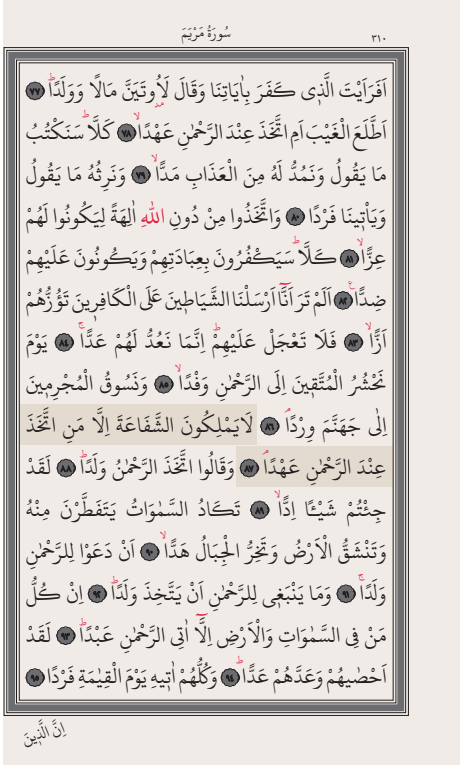 سُورَةُ مَرْيَمَ
٣١٠
اَفَرَاَيْتَ الَّذٖى كَفَرَ بِاٰيَاتِنَا وَقَالَ لَاُوتَيَنَّ مَالًا وَوَلَدًاؕ ﴿٧٧﴾
اَطَّلَعَ الْغَيْبَ اَمِ اتَّخَذَ عِنْدَ الرَّحْمٰنِ عَهْدًاۙ ﴿٧٨﴾ كَلَّاؕ سَنَكْتُبُ
مَا يَقُولُ وَنَمُدُّ لَهُ مِنَ الْعَذَابِ مَدًّاۙ ﴿٧٩﴾ وَنَرِثُهُ مَا يَقُولُ
وَيَأْتٖينَا فَرْدًا ﴿٨٠﴾ وَاتَّخَذُوا مِنْ دُونِ اللّٰهِ اٰلِهَةً لِيَكُونُوا لَهُمْ
عِزًّاۙ ﴿٨١﴾ كَلَّاؕ سَيَكْفُرُونَ بِعِبَادَتِهِمْ وَيَكُونُونَ عَلَيْهِمْ
ضِدًّاࣖ ﴿٨٢﴾ اَلَمْ تَرَ اَنَّٓا اَرْسَلْنَا الشَّيَاطٖينَ عَلَى الْكَافِرٖينَ تَؤُزُّهُمْ
اَزًّاۙ ﴿٨٣﴾ فَلَا تَعْجَلْ عَلَيْهِمْؕ اِنَّمَا نَعُدُّ لَهُمْ عَدًّاۚ ﴿٨٤﴾ يَوْمَ
نَحْشُرُ الْمُتَّقٖينَ اِلَى الرَّحْمٰنِ وَفْدًاۙ ﴿٨٥﴾ وَنَسُوقُ الْمُجْرِمٖينَ
اِلٰى جَهَنَّمَ وِرْدًاۘ ﴿٨٦﴾ لَا يَمْلِكُونَ الشَّفَاعَةَ اِلَّا مَنِ اتَّخَذَ
عِنْدَ الرَّحْمٰنِ عَهْدًاۘ ﴿٨٧﴾ وَقَالُوا اتَّخَذَ الرَّحْمٰنُ وَلَدًاؕ ﴿٨٨﴾ لَقَدْ
جِئْتُمْ شَيْـًٔا اِدًّاۙ ﴿٨٩﴾ تَكَادُ السَّمٰوَاتُ يَتَفَطَّرْنَ مِنْهُ
وَتَنْشَقُّ الْاَرْضُ وَتَخِرُّ الْجِبَالُ هَدًّاۙ ﴿٩٠﴾ اَنْ دَعَوْا لِلرَّحْمٰنِ
وَلَدًاۚ ﴿٩١﴾ وَمَا يَنْبَغٖى لِلرَّحْمٰنِ اَنْ يَتَّخِذَ وَلَدًاؕ ﴿٩٢﴾ اِنْ كُلُّ
مَنْ فِى السَّمٰوَاتِ وَالْاَرْضِ اِلَّٓا اٰتِى الرَّحْمٰنِ عَبْدًاؕ ﴿٩٣﴾ لَقَدْ
اَحْصٰيهُمْ وَعَدَّهُمْ عَدًّاؕ ﴿٩٤﴾ وَكُلُّهُمْ اٰتٖيهِ يَوْمَ الْقِيٰمَةِ فَرْدًا ﴿٩٥﴾
اِنَّ الَّذٖينَ